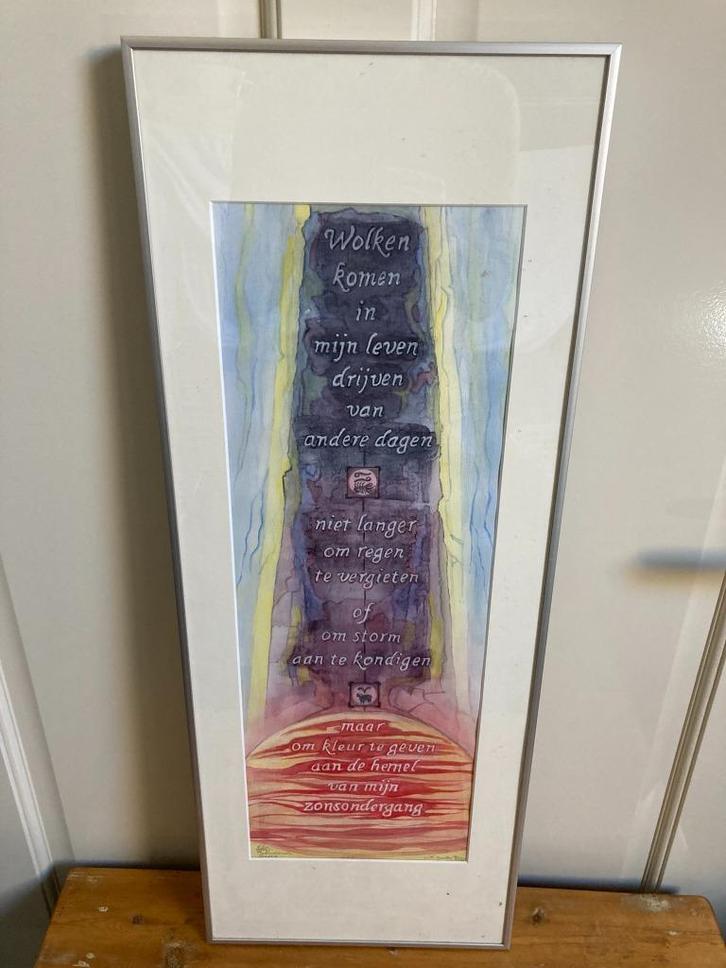 Wolken
komen
in
mijn leven
drijven
van
andere dagen
niet langer
om regen
te vergieten
of
om storm
aan te kondigen
maar
om kleur te geven
aan de hemel
van mijn
zonsondergang